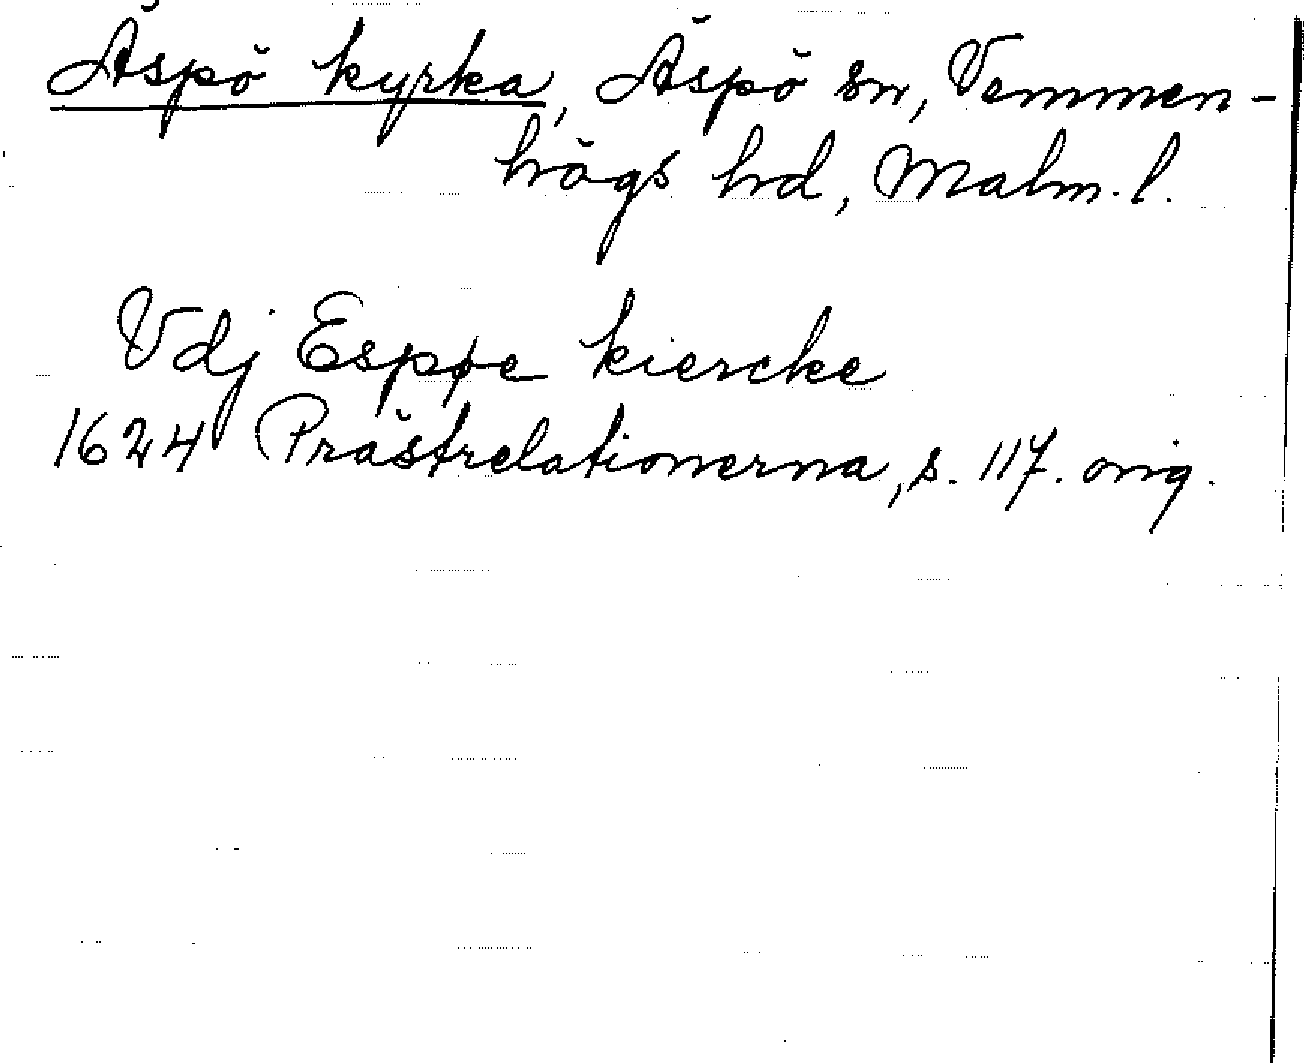 Äspö kyrka, Äspö sn, Vemmen-
högs hd, Malm. l.
Vdj Esppe kiercke
1624 Prästrelationerna, s. 117. orig.